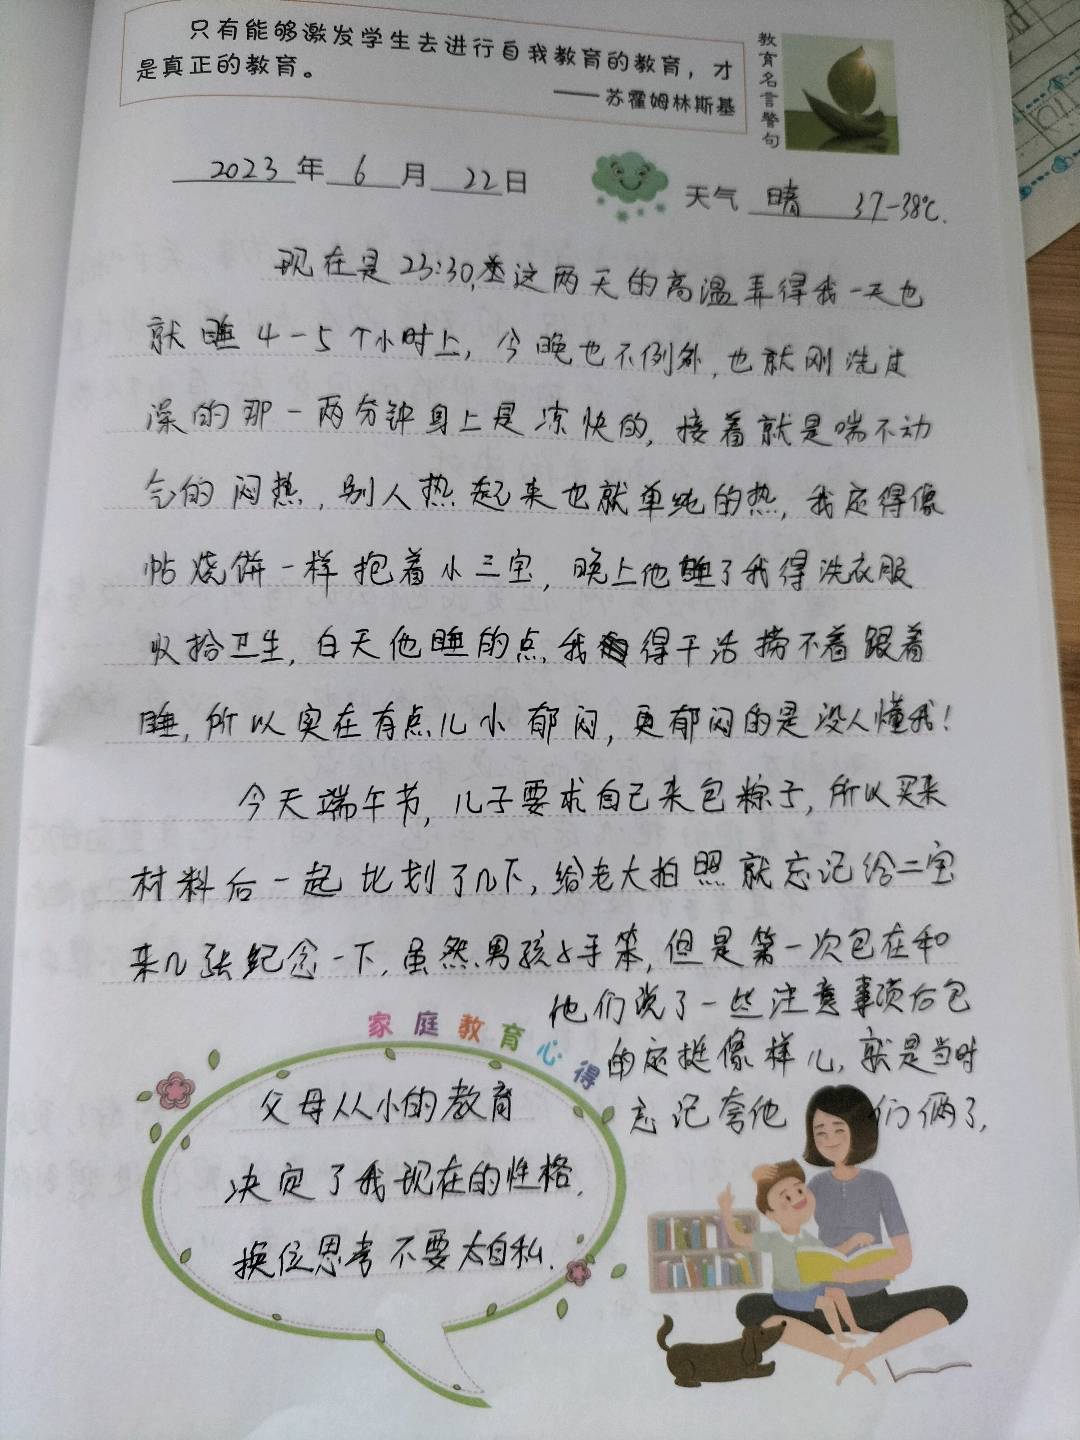 只有能够激发学生去进行自我教育的教育，才
是真正的教育。
——苏霍姆林斯基
教育名言警句
2023年6月22日
天气 晴 37-38℃.
现在是23:30,这两天的高温弄得我一天也
就睡4-5个小时上，今晚也不例外，也就刚洗过
澡的那一两分钟身上是凉快的，接着就是喘不动
气的闷热，别人热起来也就单纯的热，我还得像
帖烧饼一样抱着小三宝，晚上他睡了我得洗衣服
收拾卫生，白天他睡的点，我得干活捞不着跟着
睡，所以实在有点儿小郁闷，更郁闷的是没人懂我！
今天端午节，儿子要求自己来包粽子，所以买来
材料后一起比划了几下，给老大拍照就忘记给二宝
来几张纪念一下，虽然男孩子手笨，但是第一次包在和
他们说了一些注意事项后包
的还挺像样儿，就是当时
忘记夸他们俩了，
家庭教育心得
父母从小的教育
决定了我现在的性格，
换位思考不要太自私.